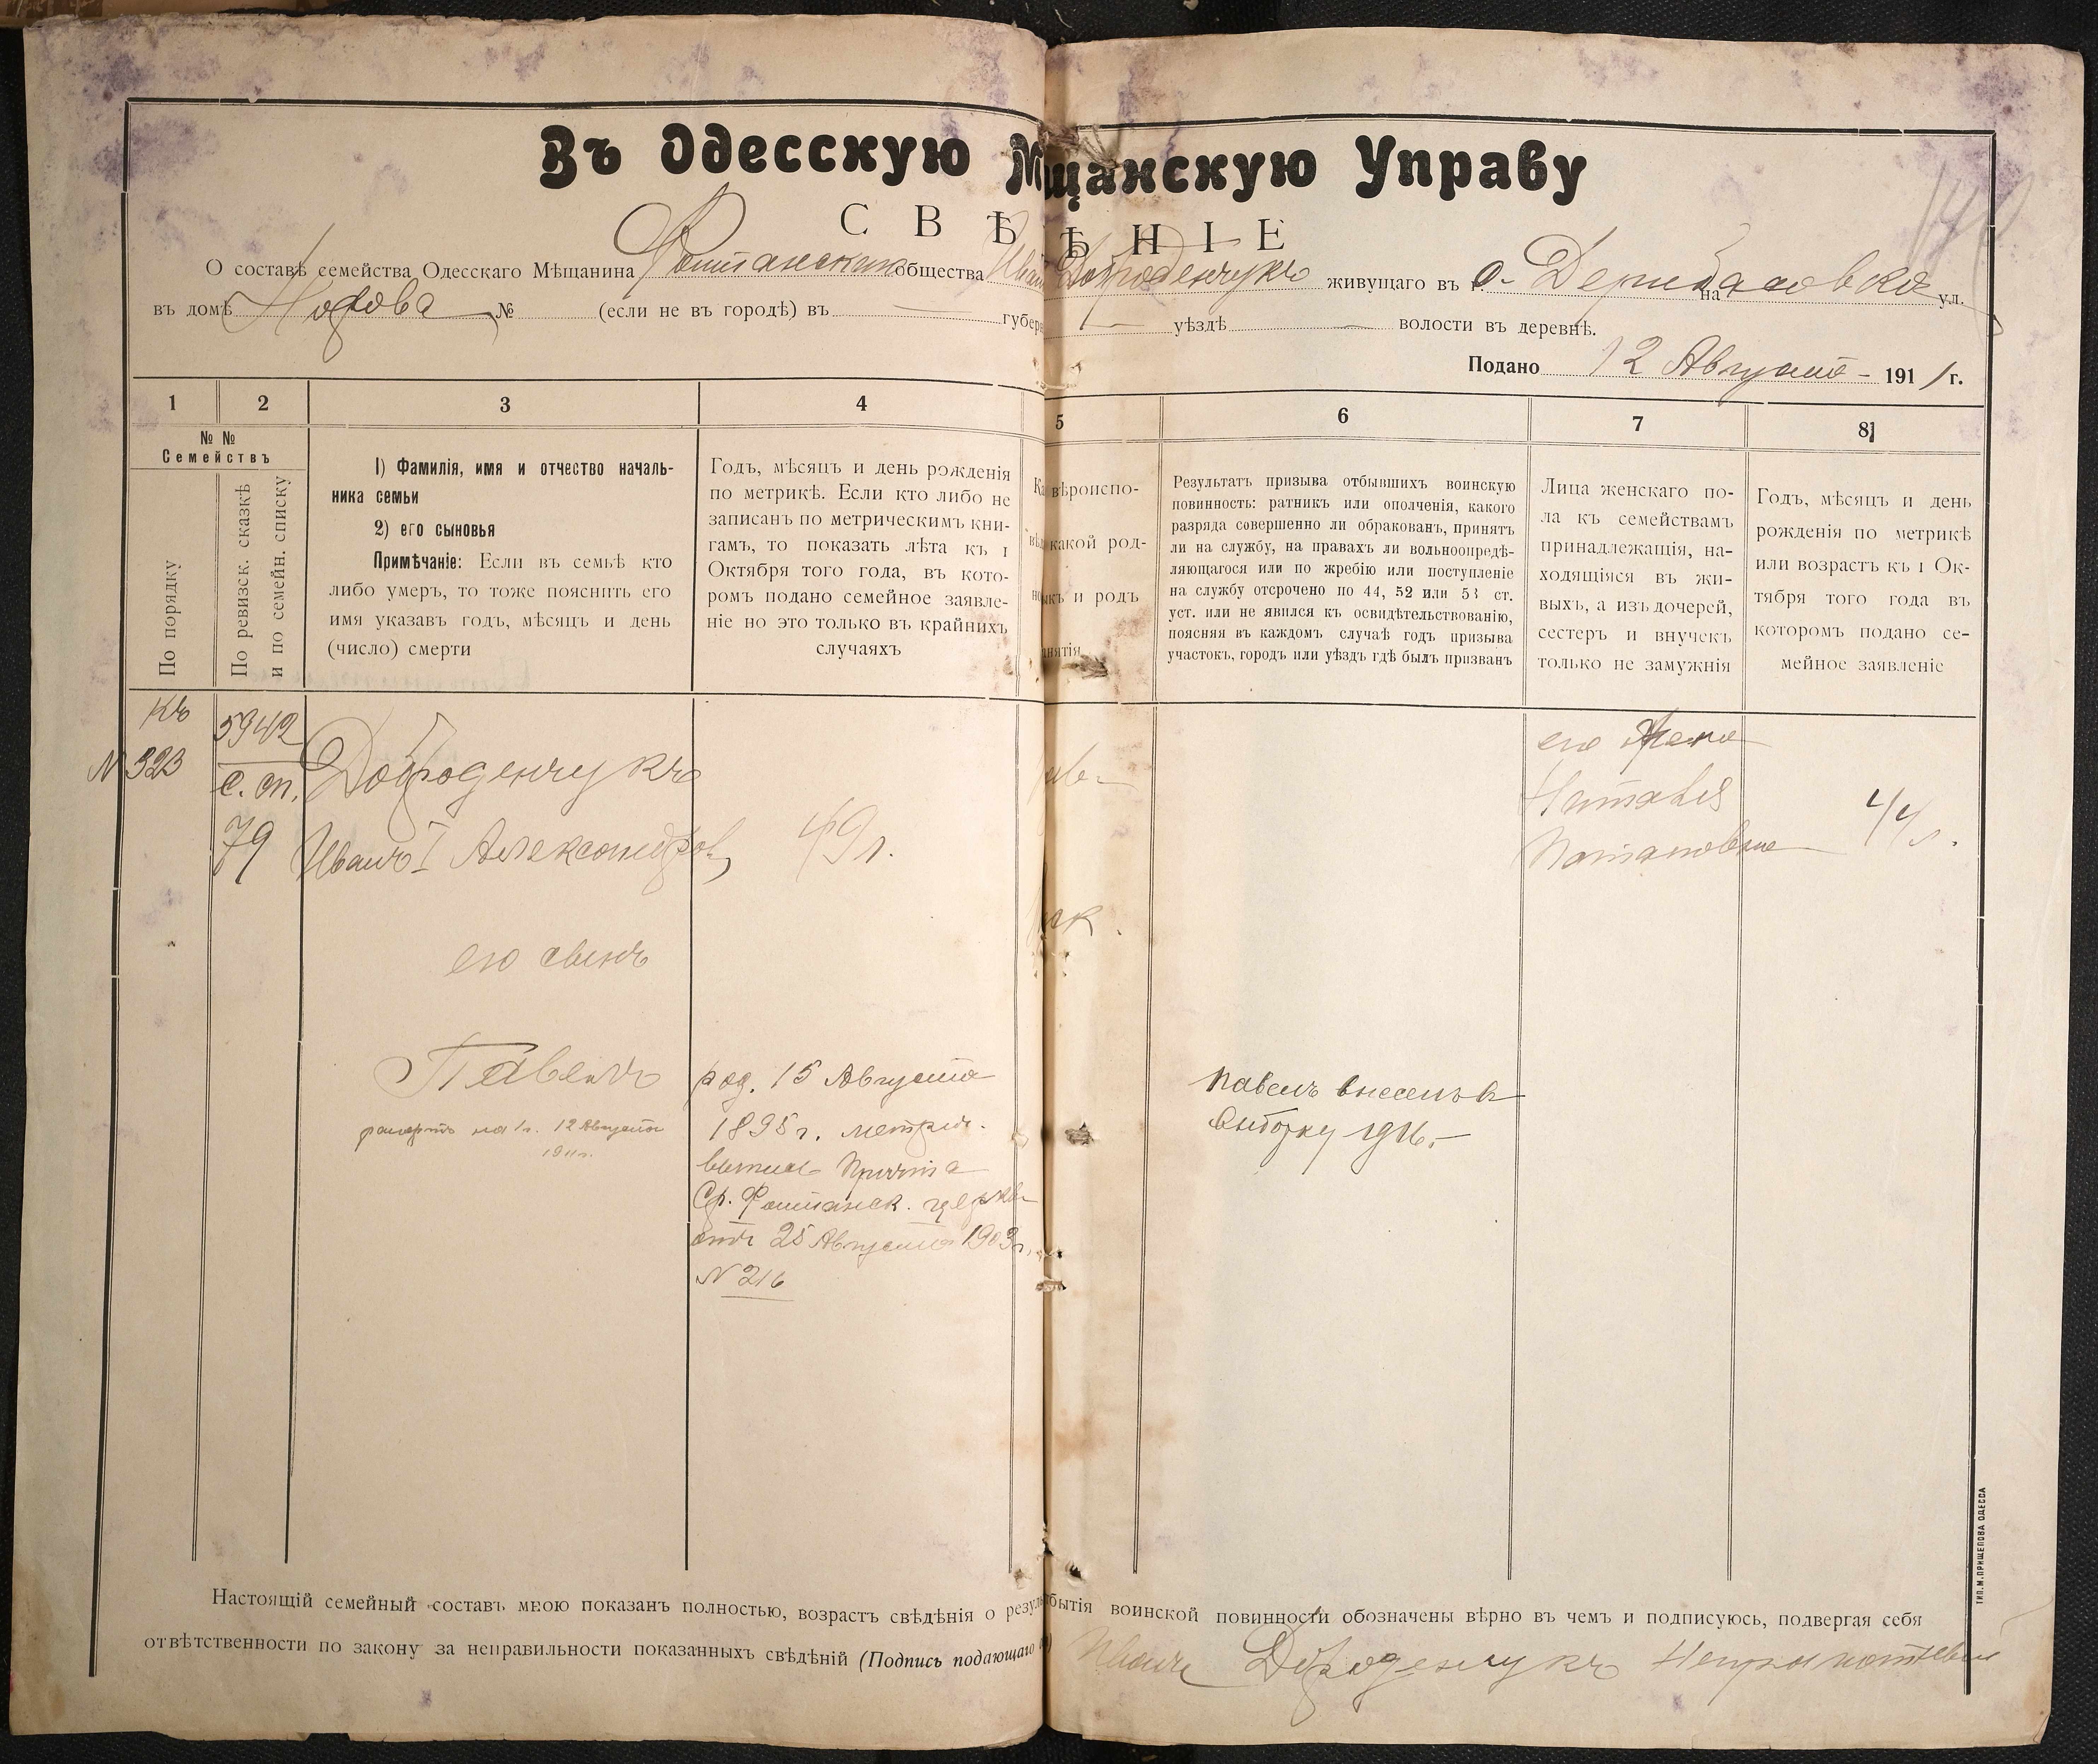 Въ Одесскую Мщанскую Управу
С В Ѣ Ѣ Н І Е
О составѣ семейства Одесскаго Мѣщанина Фонтанскаго общества Иван Доброденчукъ живущаго въ г. с. Дерибасовка на ул.
въ домѣ № (если не въ городѣ) въ — губер — уѣздѣ — волости въ деревнѣ.
Подано 12 Августа - 1911 г.
1 2 3 4 5 6 7 8
№ №
Семействъ
По порядку
По ревизск. сказкѣ
и по семейн. списку
1) Фамилія, имя и отчество началь-
ника семьи
2) его сыновья
Примѣчаніе: Если въ семьѣ кто
либо умеръ, то тоже пояснить его
имя указавъ годъ, мѣсяцъ и день
(число) смерти
Годъ, мѣсяцъ и день рожденія
по метрикѣ. Если кто либо не
записанъ по метрическимъ кни-
гамъ, то показать лѣта къ 1
Октября того года, въ кото-
ромъ подано семейное заявле-
ніе но это только въ крайнихъ
случаяхъ
Ка вѣроиспо-
вѣд какой род-
но ыкъ и родъ
анятія
Результатъ призыва отбывшихъ воинскую
повинность: ратникъ или ополченія, какого
разряда совершенно ли обракованъ, принятъ
ли на службу, на правахъ ли вольноопредѣ-
ляющагося или по жребію или поступленіе
на службу отсрочено по 44, 52 или 53 ст.
уст. или не явился къ освидѣтельствованію,
поясняя въ каждомъ случаѣ годъ призыва
участокъ, городъ или уѣздъ гдѣ былъ призванъ
Лица женскаго по-
ла къ семействамъ
принадлежащія, на-
ходящіяся въ жи-
выхъ, а изъ дочерей,
сестеръ и внучекъ
только не замужнія
Годъ, мѣсяцъ и день
рожденія по метрикѣ
или возрастъ къ 1 Ок-
тября того года въ
которомъ подано се-
мейное заявленіе
Къ
N 323
5942
с. сп.
79
Доброденчукъ
Иванъ I Александров,
49 г.
его сынъ
Павелъ
на 1 г. 12 Августа
1911 г.
род. 15 Августа
1895 г. метрич.
выпись Причта
Ср. Фонтанск. церкви
отъ 25 Августа 1903 г.
N 216
Павелъ внесенъ въ
выборку 1916 г.
его жена
Наталія
Потаповна
44 л.
Настоящій семейный составъ мною показанъ полностью, возрастъ свѣдѣнія о резуль бытія воинской повинности обозначены вѣрно въ чемъ и подписуюсь, подвергая себя
отвѣтственности по закону за неправильности показанныхъ свѣдѣній (Подпись подающаго Иванъ Доброденчукъ
ТИП. М. ПРИЩЕПОВА ОДЕССА